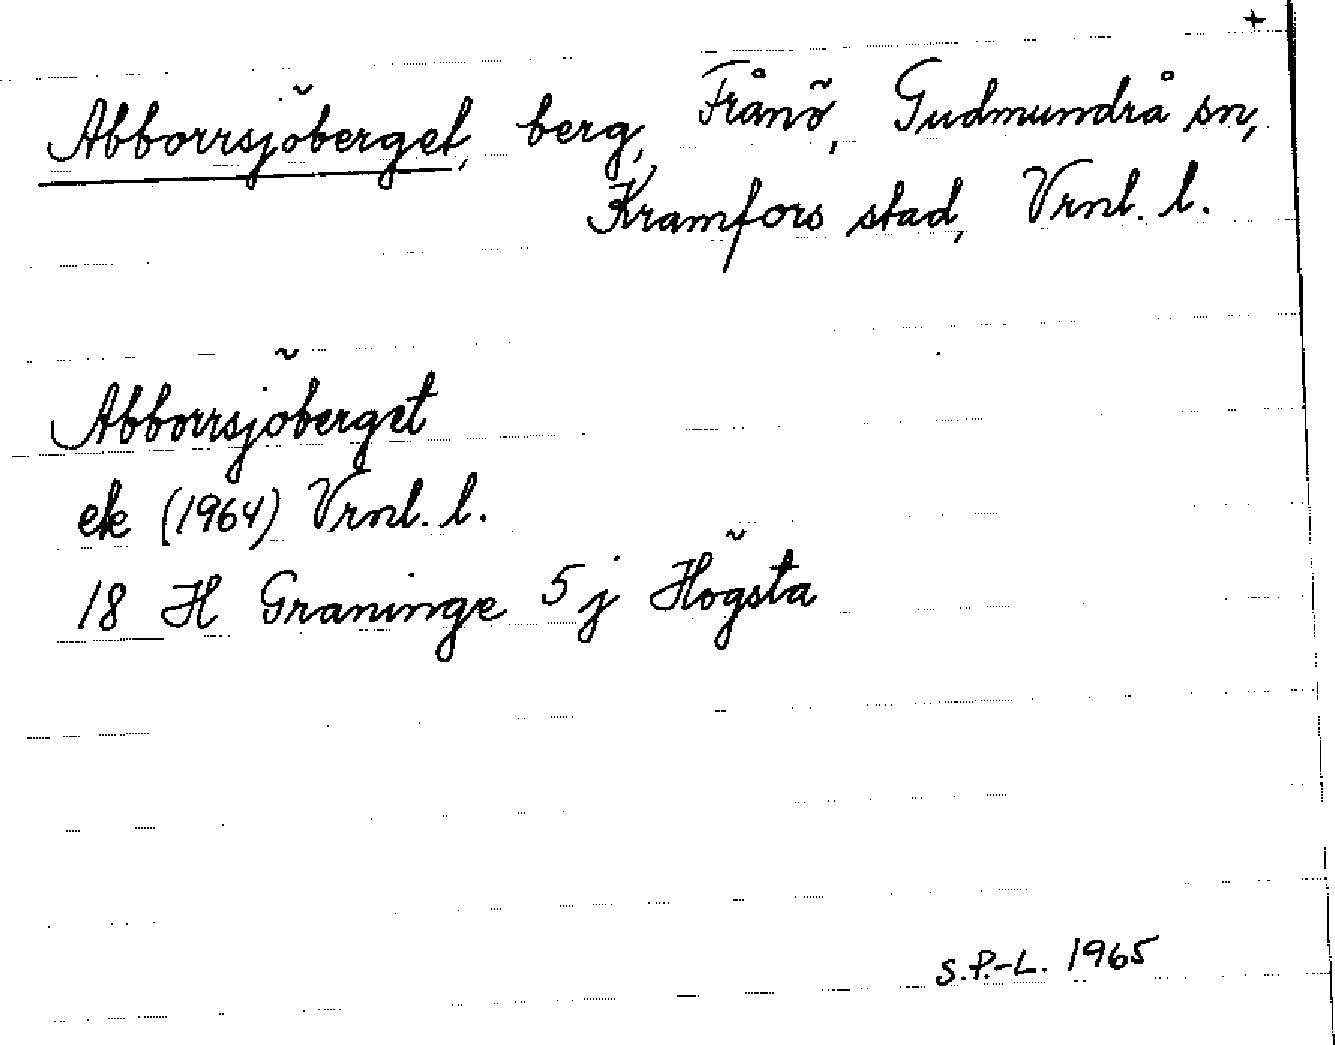 +
Abborrsjöberget, berg, Frånö, Gudmundrå sn,
Kramfors stad, Vrnl. l.
Abborrsjöberget
ek (1964) Vrnl. l.
18 H Graninge 5 j Högsta
S.P.-L. 1965